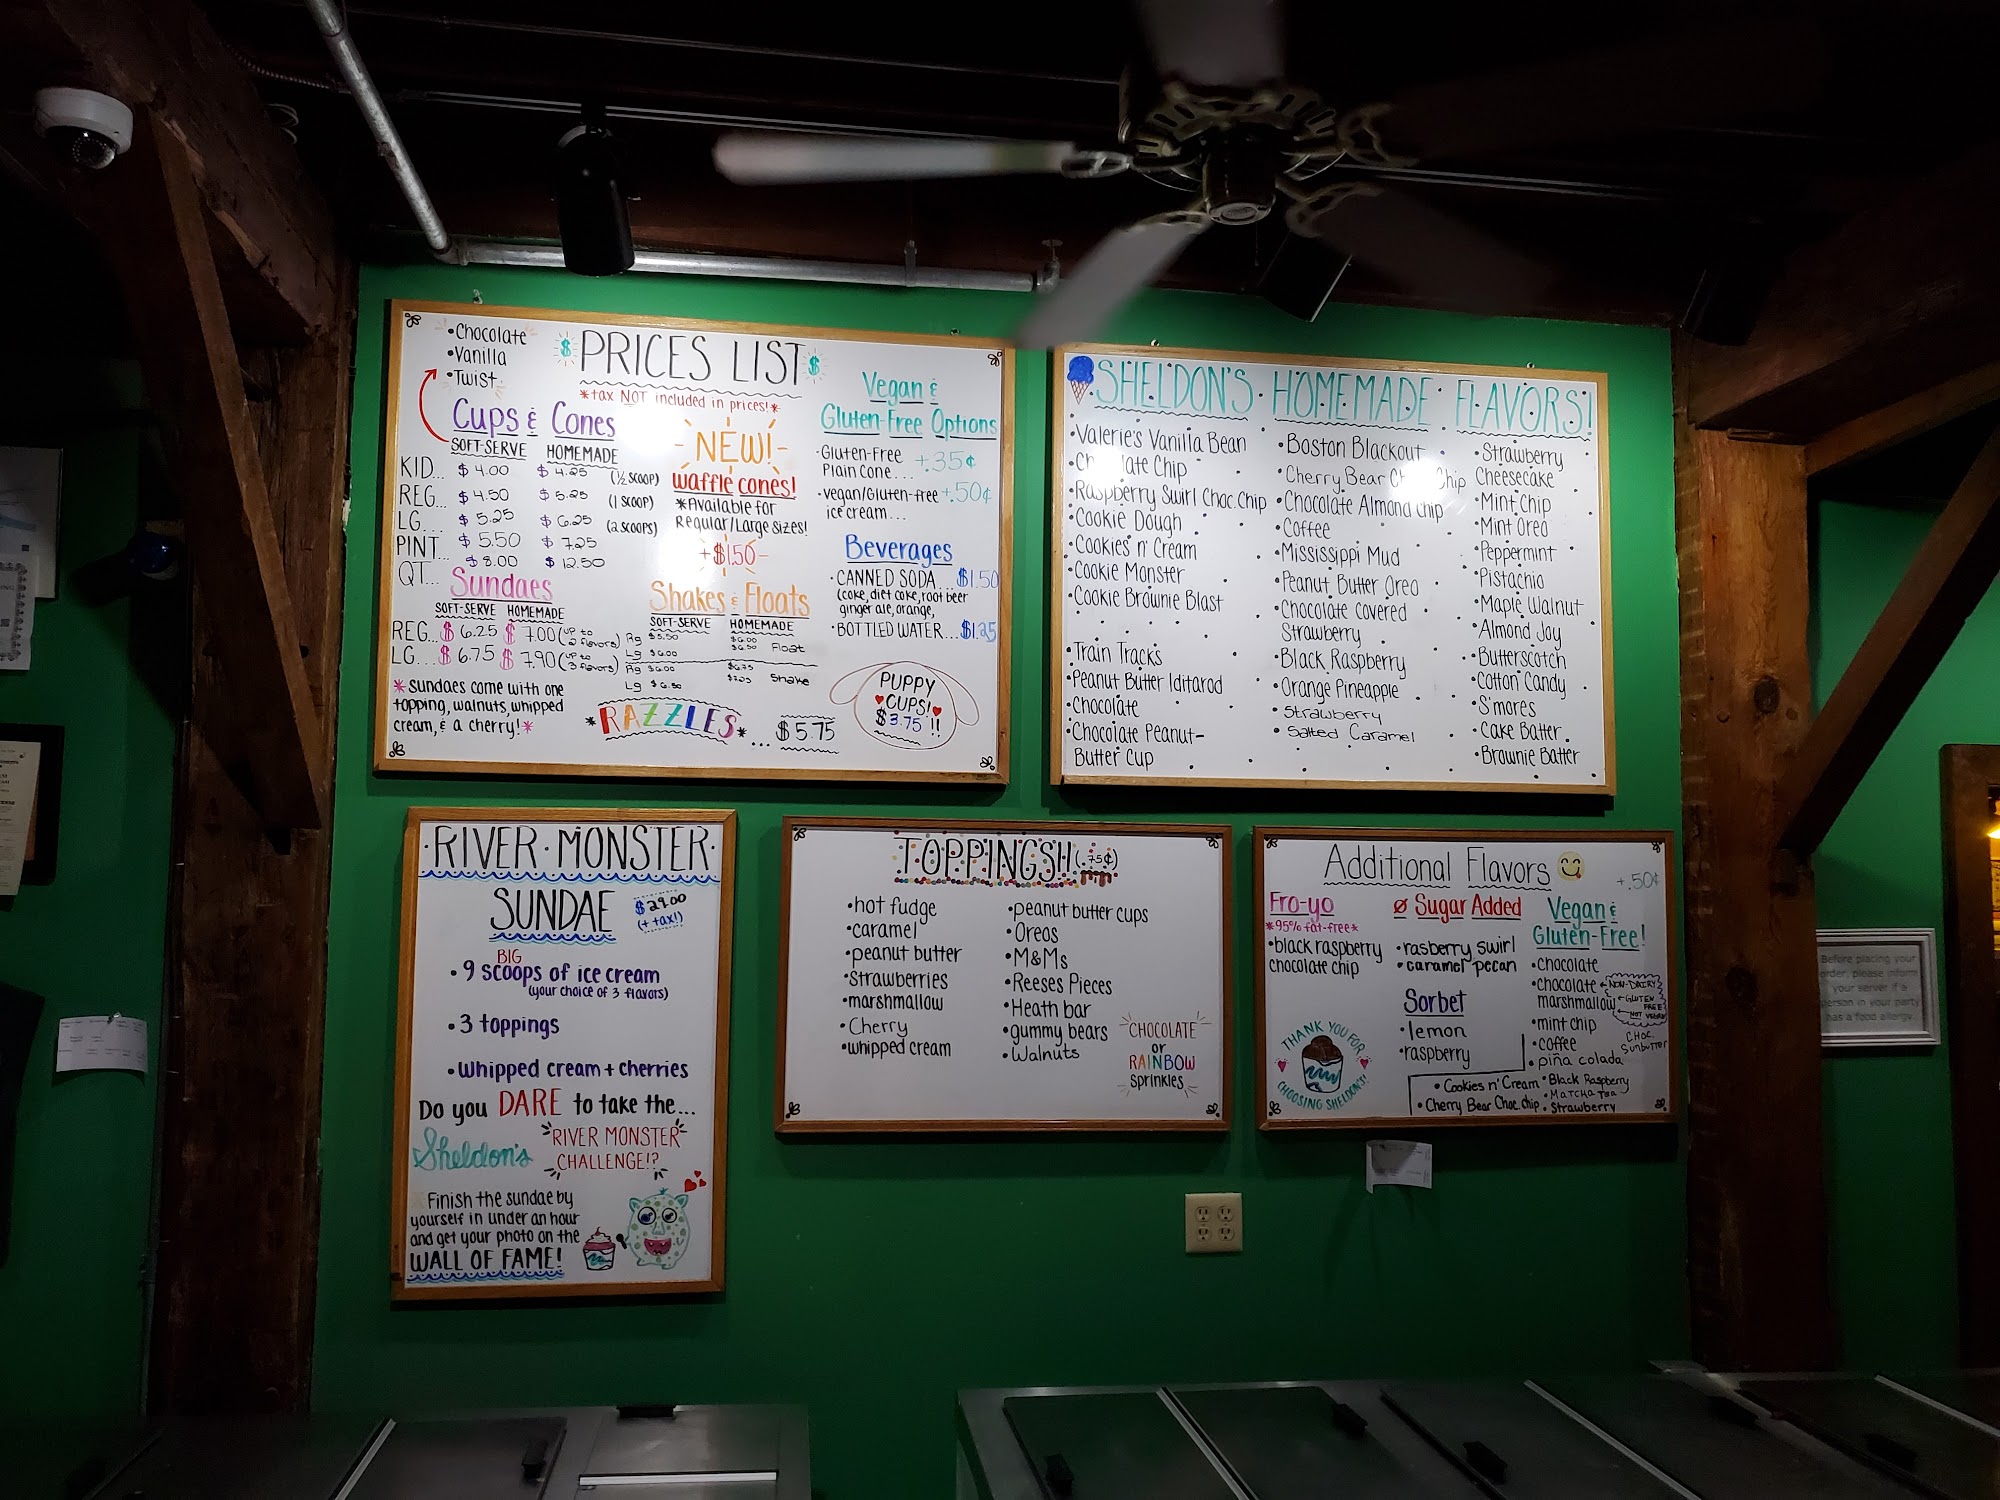 •Chocolate
•Vanilla
•Twist
$ PRICES LIST $
*tax NOT included in prices!*
Cups & Cones
SOFT-SERVE HOMEMADE
KID... $ 4.00 $ 4.25 (½ SCOOP)
REG... $ 4.50 $ 5.25 (1 SCOOP)
LG... $ 5.25 $ 6.25 (2 SCOOPS)
PINT... $ 5.50 $ 7.25
QT... $ 8.00 $ 12.50
NEW!
waffle cones!
*Available for
Regular/Large sizes!
+$1.50
Vegan &
Gluten-Free Options
•Gluten-Free +.35¢
Plain Cone...
•vegan/Gluten-free +.50¢
ice cream...
Beverages
•CANNED SODA... $1.50
(coke, diet coke, root beer
ginger ale, orange,
•BOTTLED WATER... $1.25
Sundaes
SOFT-SERVE HOMEMADE
REG... $ 6.25 $ 7.00 (up to 2 flavors)
LG... $ 6.75 $ 7.90 (up to 3 flavors)
*Sundaes come with one
topping, walnuts, whipped
cream, & a cherry!*
Shakes & Floats
SOFT-SERVE HOMEMADE
Rg $5.50 $6.00 Float
Lg $6.00 $6.50
Rg $6.00 $6.75 Shake
Lg $6.50 $7.25
*RAZZLES* ... $5.75
PUPPY
CUPS!
$3.75!!
SHELDON'S HOMEMADE FLAVORS!
•Valerie's Vanilla Bean
•Chocolate Chip
•Raspberry Swirl Choc. Chip
•Cookie Dough
•Cookies n' Cream
•Cookie Monster
•Cookie Brownie Blast
•Train Tracks
•Peanut Butter Iditarod
•Chocolate
•Chocolate Peanut-
Butter Cup
•Boston Blackout
•Cherry Bear Choc Chip
•Chocolate Almond Chip
•Coffee
•Mississippi Mud
•Peanut Butter Oreo
•Chocolate covered
Strawberry
•Black Raspberry
•Orange Pineapple
•Strawberry
•Salted Caramel
•Strawberry
Cheesecake
•Mint Chip
•Mint Oreo
•Peppermint
•Pistachio
•Maple Walnut
•Almond Joy
•Butterscotch
•Cotton Candy
•S'mores
•Cake Batter
•Brownie Batter
•RIVER•MONSTER•
SUNDAE $29.00
(+ tax!)
BIG
•9 scoops of ice cream
(your choice of 3 flavors)
•3 toppings
•Whipped cream + cherries
Do you DARE to take the...
Sheldon's "RIVER MONSTER
CHALLENGE!?
Finish the sundae by
yourself in under an hour
and get your photo on the
WALL OF FAME!
TOPPINGS!! (.75¢)
•hot fudge
•caramel
•peanut butter
•Strawberries
•marshmallow
•Cherry
•whipped cream
•peanut butter cups
•Oreos
•M&Ms
•Reeses Pieces
•Heath bar
•gummy bears
•Walnuts
CHOCOLATE
or
RAINBOW
sprinkles
Additional Flavors
+.50¢
Fro-yo
*95% fat-free*
•black raspberry
chocolate chip
Ø Sugar Added
•rasberry swirl
•caramel pecan
Sorbet
•lemon
•raspberry
Vegan &
Gluten-Free!
•Chocolate
•chocolate
marshmallow
NON-DAIRY
GLUTEN
FREE
NOT VEGAN
•mint chip
•coffee
•piña colada
CHOC.
SUNBUTTER
•Cookies n' Cream •Black Raspberry
•MATCHA TEA
•Cherry Bear Choc. chip •Strawberry
THANK YOU FOR
CHOOSING SHELDON'S!
Before placing your
order, please inform
your server if a
person in your party
has a food allergy.